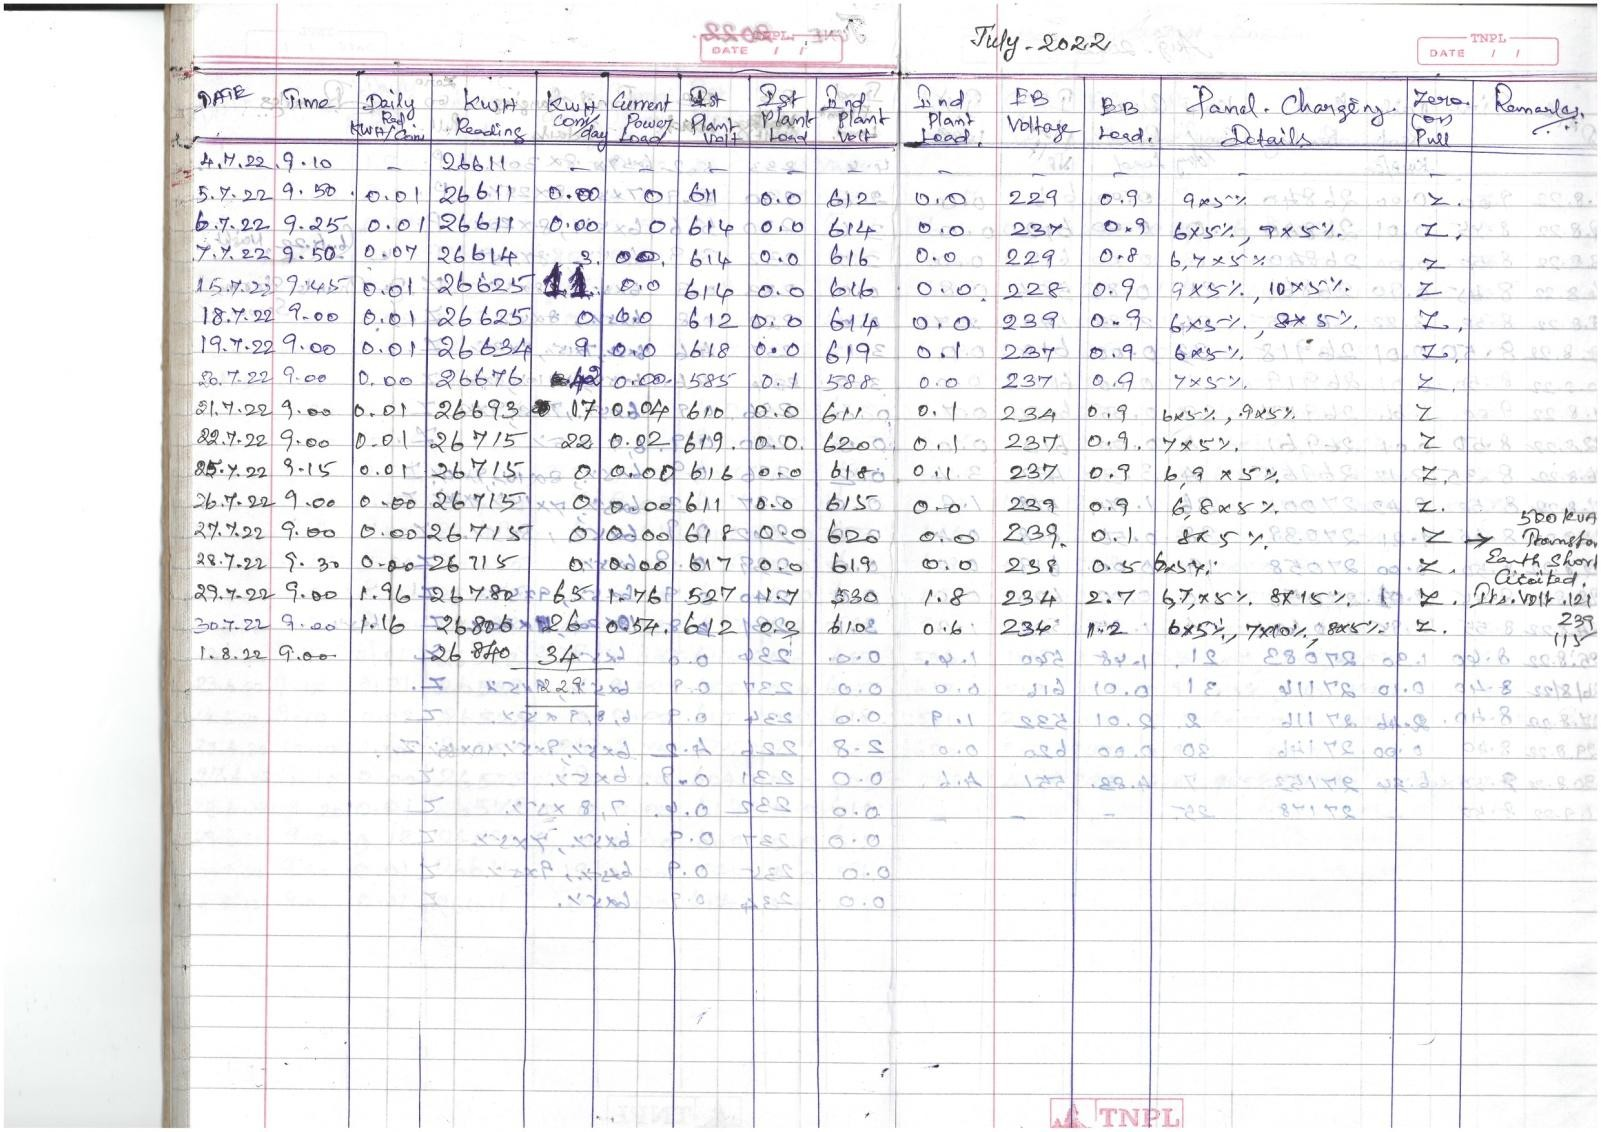 July-2022
TNPL
DATE / /
TNPL
DATE / /
DATE Time Daily Rad KWH/Con KWH Reading KWH Con/day Current Power Load Ist Plant Volt Ist Plant Load IInd Plant Volt IInd Plant Load. EB Voltage EB Load. Panel. Charging Details Zero (or) Full Remarks.
4.7.22 9.10 - 26611 - - - - - - - - - -
5.7.22 9.50 0.01 26611 0.00 0 611 0.0 612 0.0 229 0.9 9x5% Z.
6.7.22 9.25 0.01 26611 0.00 0 614 0.0 614 0.0 237 0.9 6x5%, 9x5%. Z.
7.7.22 9.50 0.07 26614 3. 00. 614 0.0 616 0.0 229 0.8 6,7x5% Z
15.7.22 9.45 0.01 26625 11 0.0 614 0.0 616 0.0. 228 0.9 9x5%, 10x5%. Z
18.7.22 9.00 0.01 26625 0 0.0 612 0.0 614 0.0 239 0.9 6x5%, 8x5%. Z.
19.7.22 9.00 0.01 26634 9 0.0 618 0.0 619 0.1 237 0.9 6x5%. Z.
20.7.22 9.00 0.00 26676 42 0.00. 585 0.1 588 0.0 237 0.9 7x5%. Z.
21.7.22 9.00 0.01 26693 17 0.04 610 0.0 611 0.1 234 0.9 6x5%, 9x5%. Z
22.7.22 9.00 0.01 26715 22 0.02 619. 0.0. 620 0.1 237 0.9. 7x5%. Z
25.7.22 9.15 0.01 26715 0 0.00 616 0.0 618 0.1 237 0.9 6,9 x5%. Z.
26.7.22 9.00 0.00 26715 0 0.00 611 0.0 615 0.0 239 0.9 6,8x5%. Z.
27.7.22 9.00 0.00 26715 0 0.00 618 0.0 620 0.0 239. 0.1 8x5%. Z → 500 KVA
28.7.22 9.30 0.00 26715 0 0.00 617 0.0 619 0.0 238 0.5 6x5%. Z. Earth Short
29.7.22 9.00 1.96 26780 65 1.76 527 1.7 530 1.8 234 2.7 6,7,x5%. 8x15%. Z. Volt. 121
30.7.22 9.00 1.16 26806 26 0.54. 612 0.3 610 0.6 234 1.2 6x5%, 7x10%, 8x5%. Z. 239
115
1.8.22 9.00 26840 34
229
TNPL